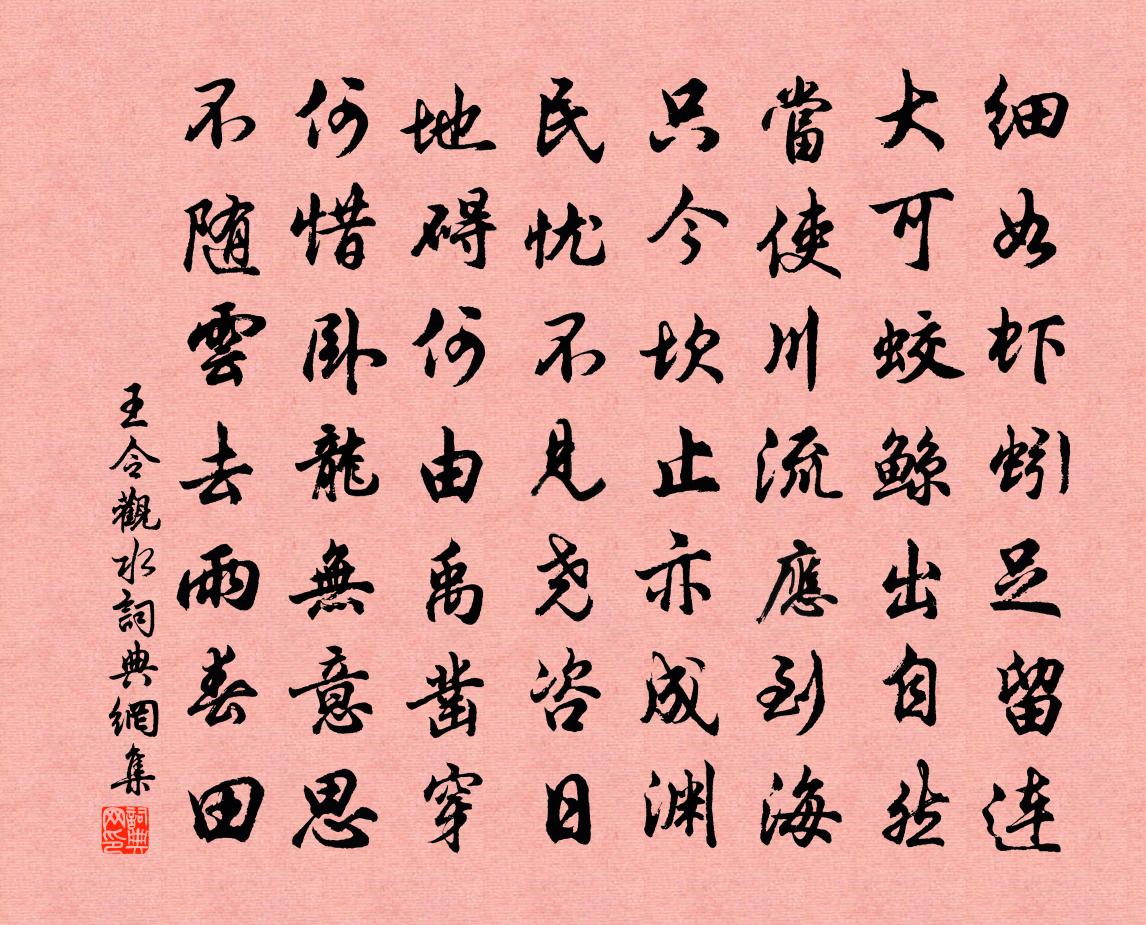 细如虾蚓足留连
大可蛟鲸出自然
當使川流應到海
只今坎止亦成渊
民忧不見尧咨日
地碍何由禹凿穿
何惜卧龍無意思
不随雲去雨春田
王令觀水詞典網集
詞典网印